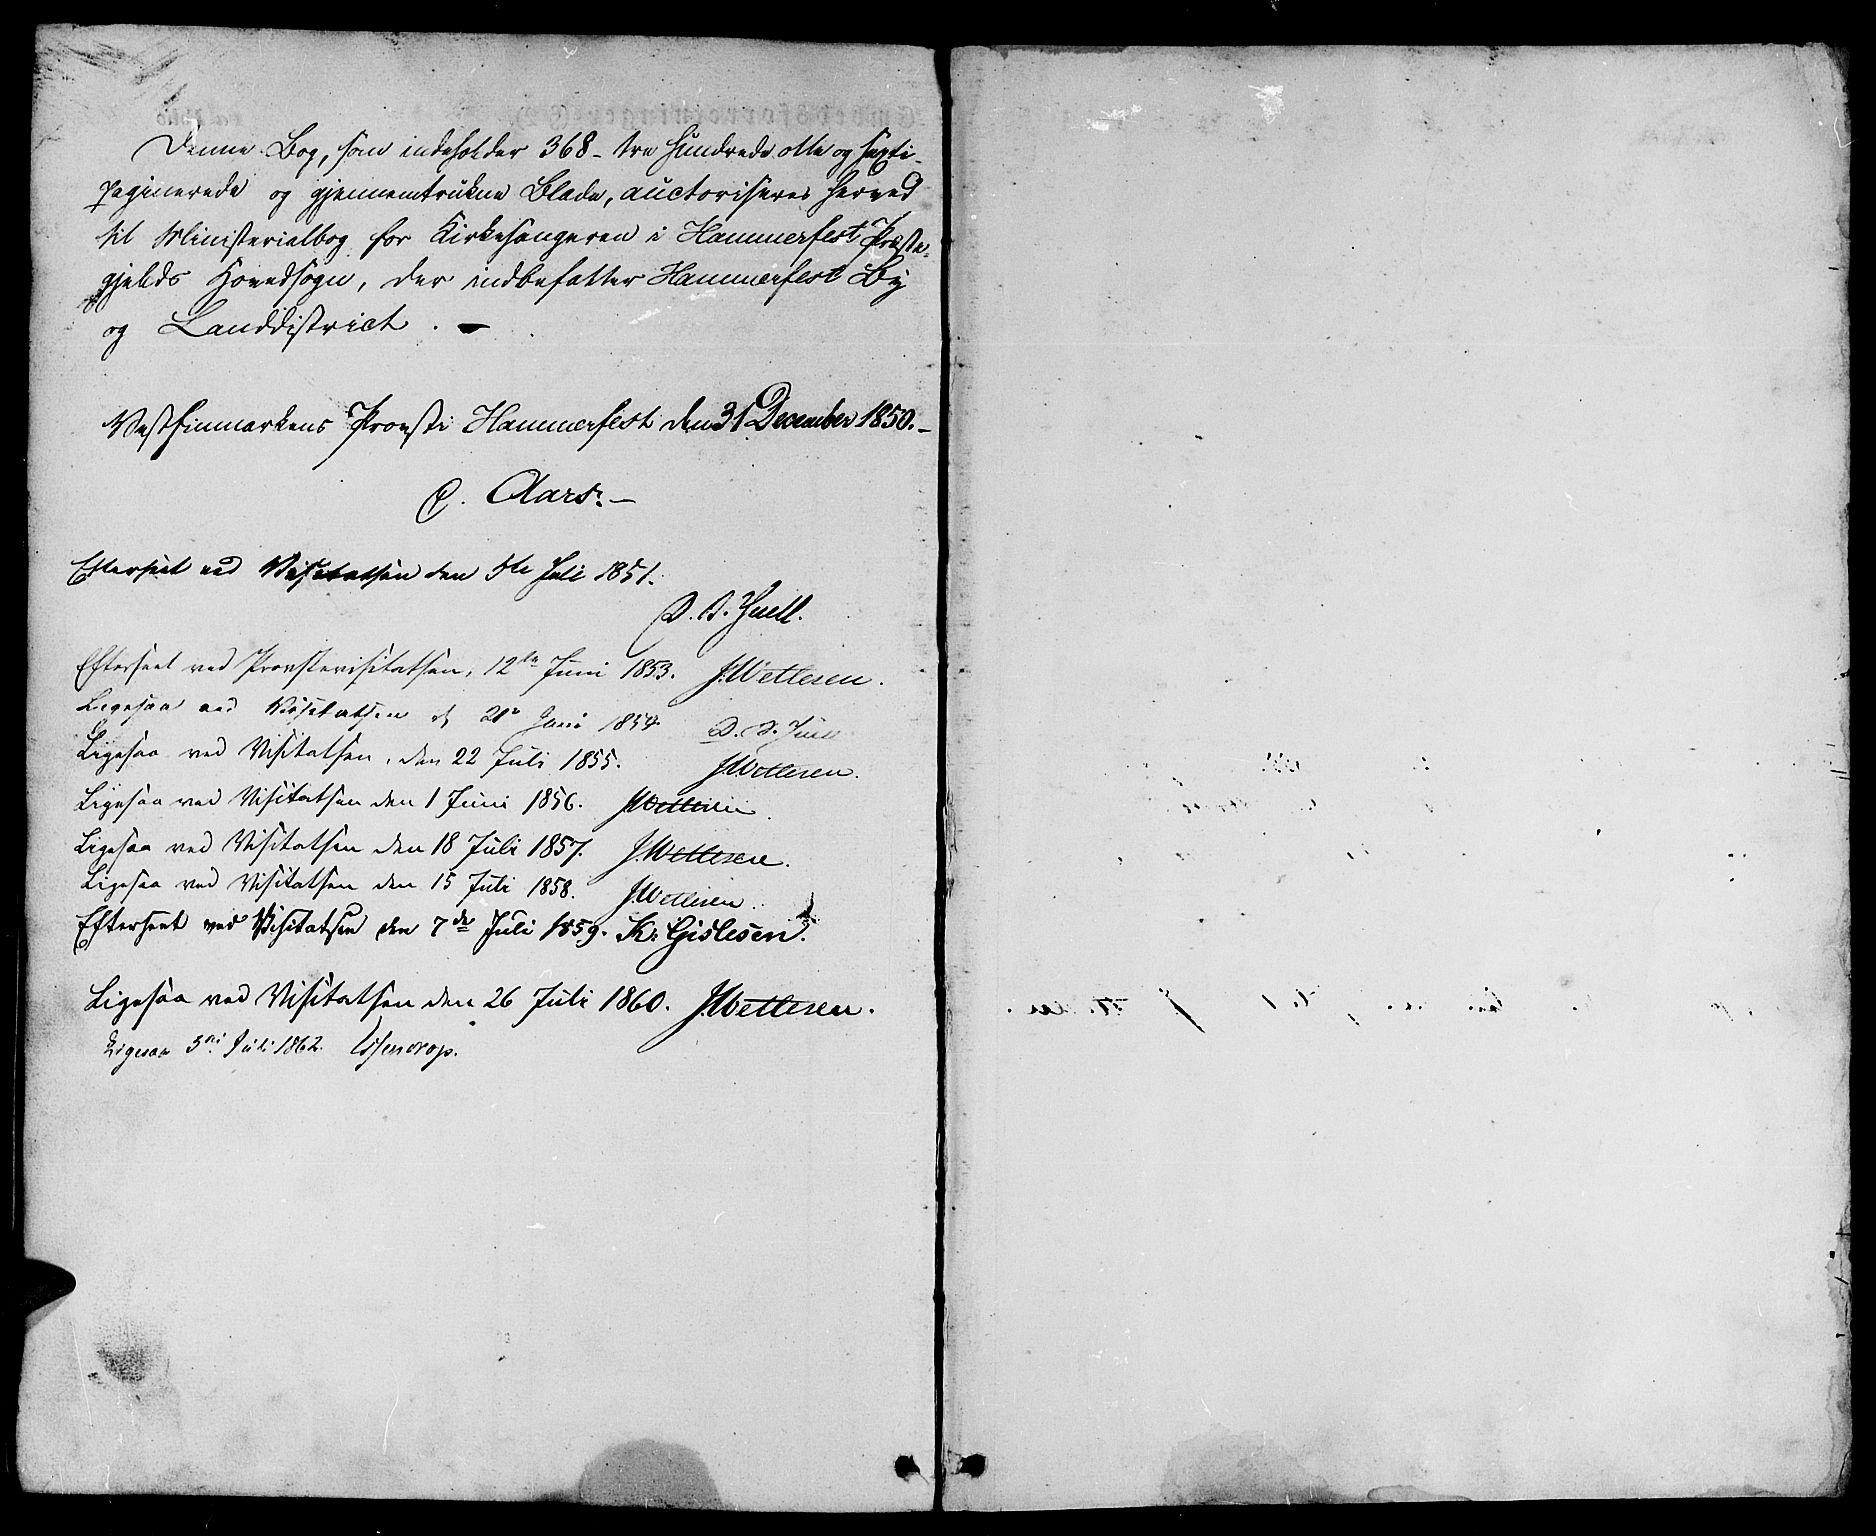 Denne Bog, som indeholder 368 - tre hundrede otte og sexti -
paginerede og gjennemtrukne Blade, auctoriseres herved
til Ministerialbog for Kirkesangeren i Hammerfest Præste-
gjelds Hovedsogn, der indbefatter Hammerfest By
og Landdistrict. -
Vestfinmarkens Provsti Hammerfest den 31 December 1850. -
Aars. -
Efterseet ved Visitatsen den 5te Juli 1851.
D. B. Juell.
Efterseet ved Provstevisitatsen, 12te Juni 1853. J. Wettesen.
Ligesaa ved Visitatsen d. Juni 1854 D. B. Juell
Ligesaa ved Visitatsen, den 22 Juli 1855. J. Wettesen.
Ligesaa ved Visitatsen den 1 Juni 1856. J. Wettesen
Ligesaa ved Visitatsen den 18 Juli 1857. J. Wettesen.
Ligesaa ved Visitatsen den 15 Juli 1858. J. Wettesen.
Efterseet ved Visitatsen den 7de Juli 1859. K: Gislesen.
Ligesaa ved Visitatsen den 26 Juli 1860. J. Wettesen.
Ligesaa Juli 1862. Essendrop.